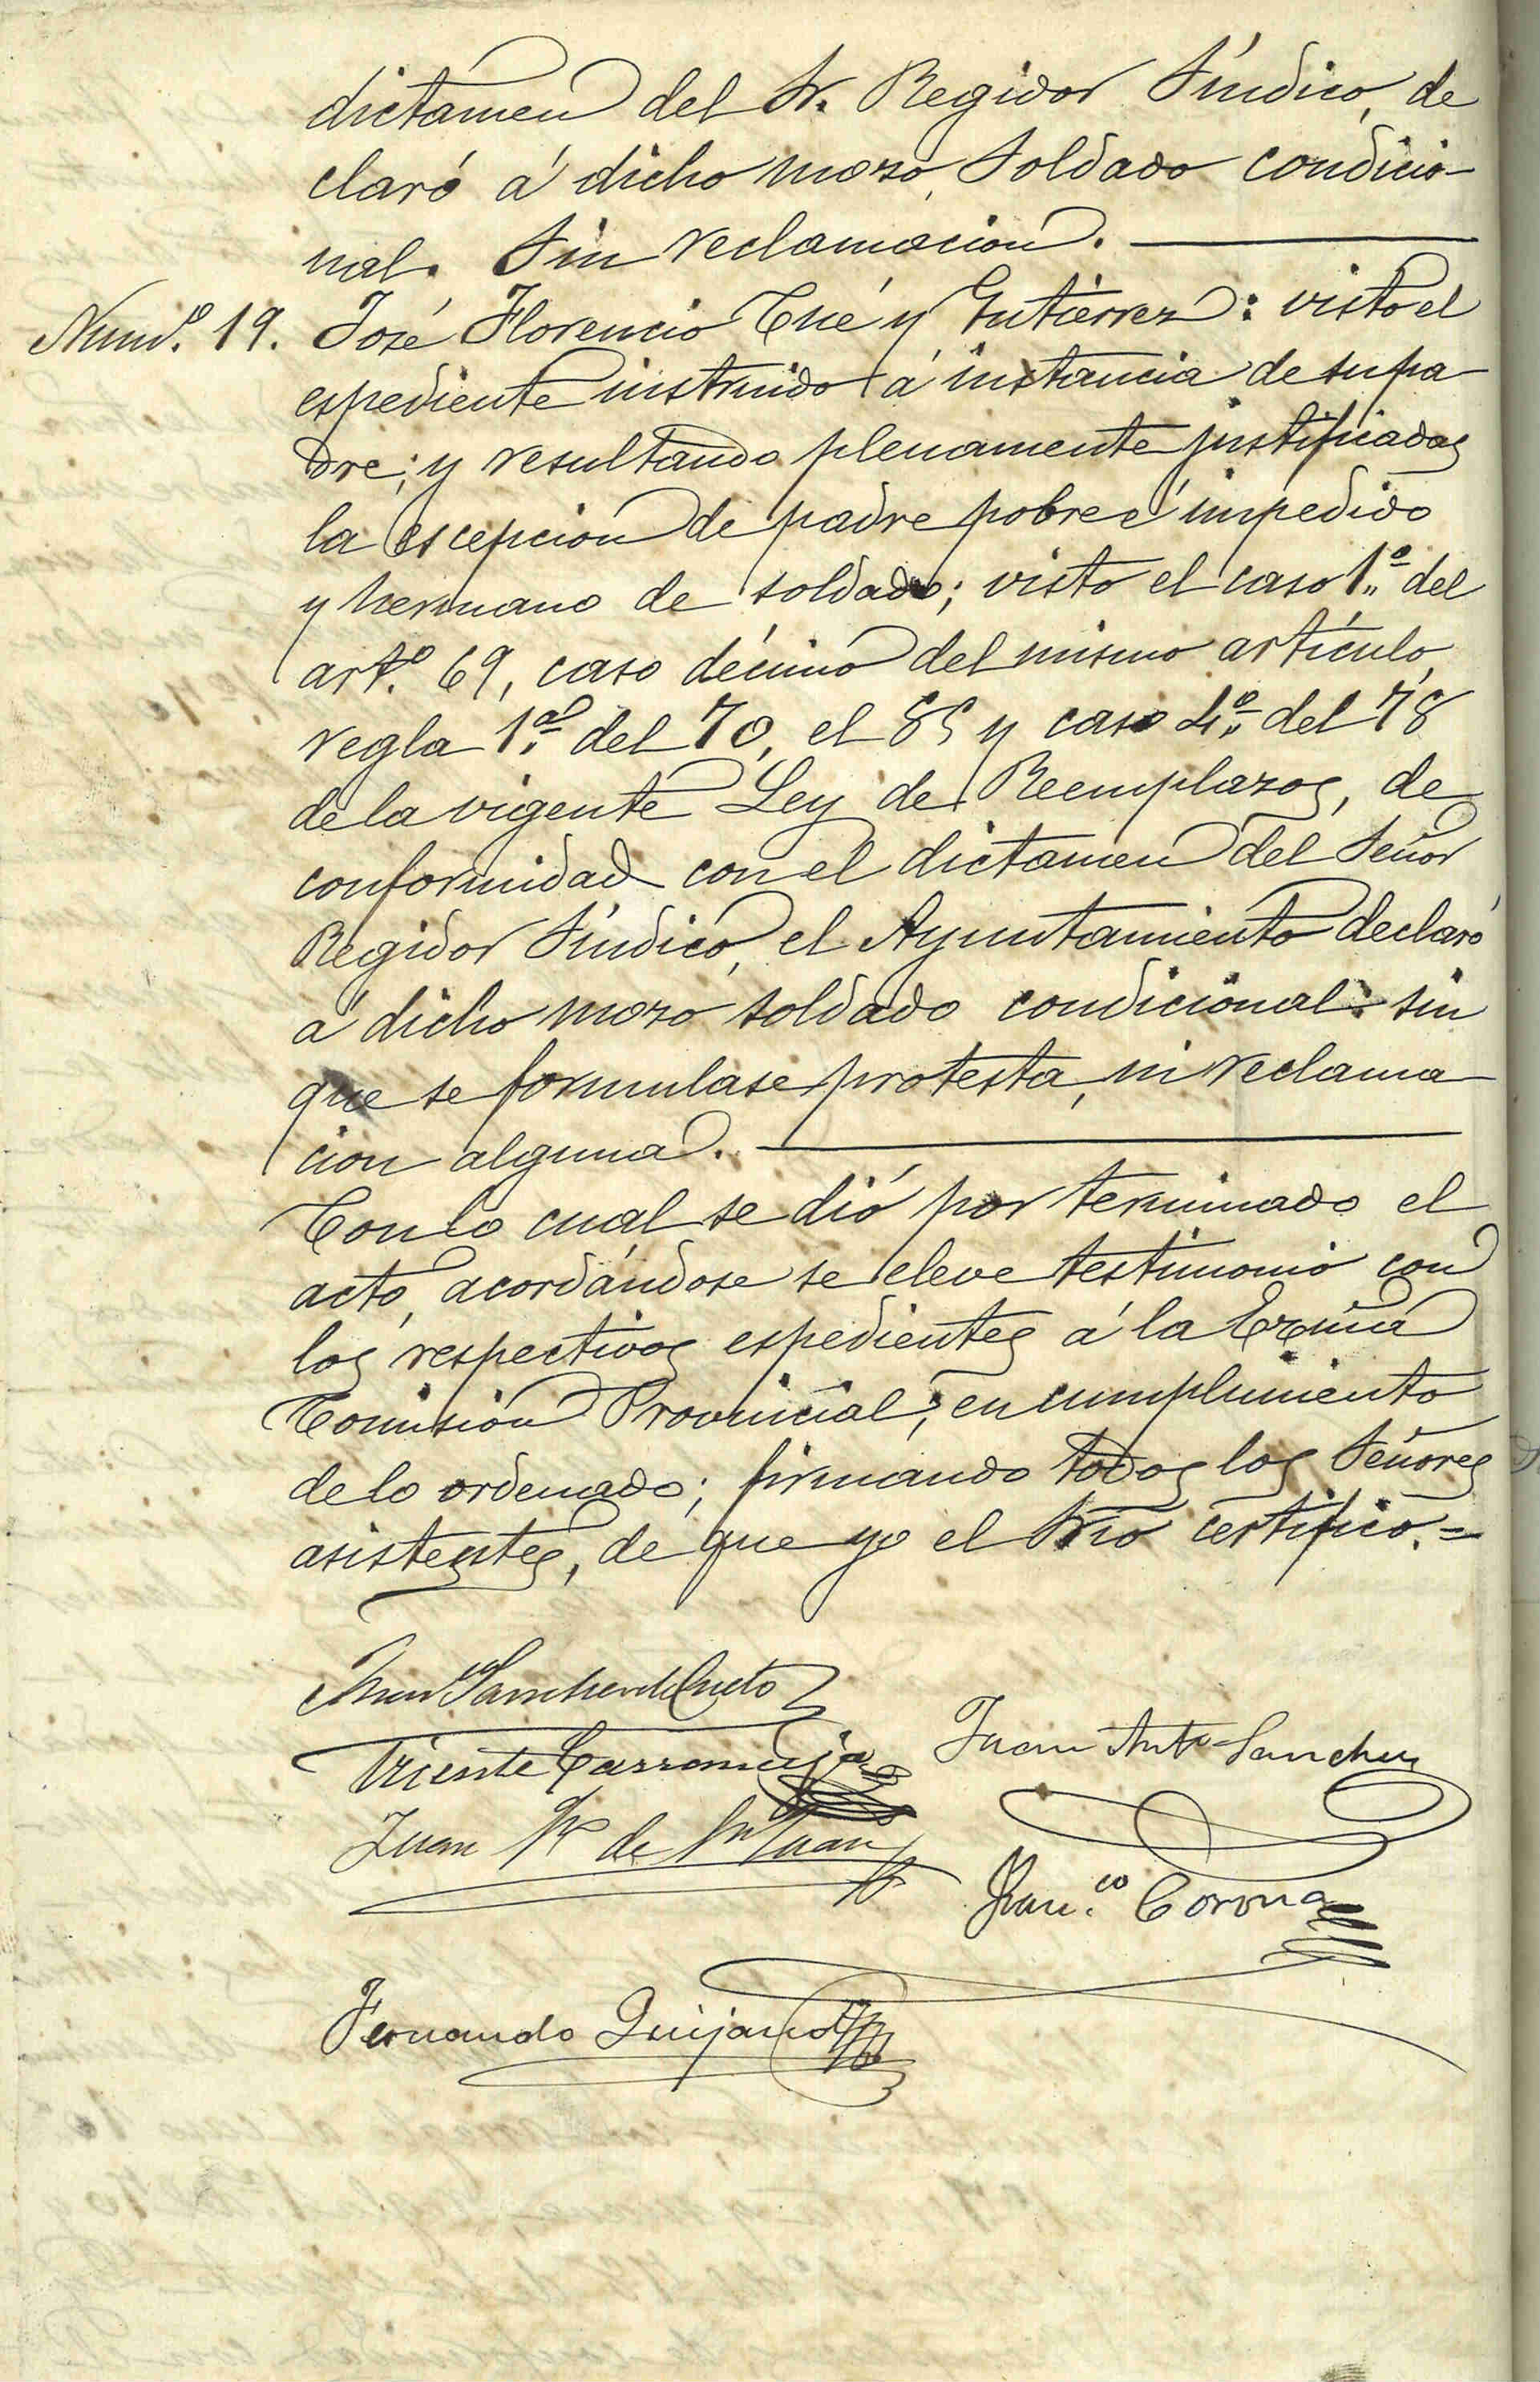 dictamen del Sr. Regidor Síndico, de
claró á dicho mozo, Soldado condicio-
nal. Sin reclamacion. —
Num.º 19. José Florencio Cué y Gutiérrez: visto el
espediente instruido á instancia de su pa-
dre; y resultando plenamente justificadas
la escepcion de padre pobre é impedido
y hermano de soldado; visto el caso 1.º del
art.º 69, caso décimo del mismo artículo,
regla 1.ª del 70, el 85 y caso 4.º del 78
de la vigente Ley de Reemplazos, de
conformidad con el dictamen del Señor
Regidor Síndico, el Ayuntamiento declaró
á dicho mozo soldado condicional: sin
que se formulase protesta, ni reclama-
cion alguna. —
Con lo cual se dió por terminado el
acto, acordándose se eleve testimonio con
los respectivos espedientes á la Excma
Comisión Provincial, en cumplimiento
de lo ordenado; firmando todos los Señores
asistentes, de que yo el Srio certifico.=
Sanchez de Cueto
Vicente Carranceja
Juan Ant.º Sanchez
Juan de Sn Juan
Fran.co Corona
Fernando Quijano